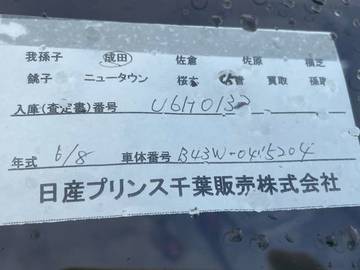 我孫子 成田 佐倉 佐原 横芝
銚子 ニュータウン 桜木 買取
入庫(査定書)番号 U6H0132
年式 6/8 車体番号 B43W-0415204
日産プリンス千葉販売株式会社